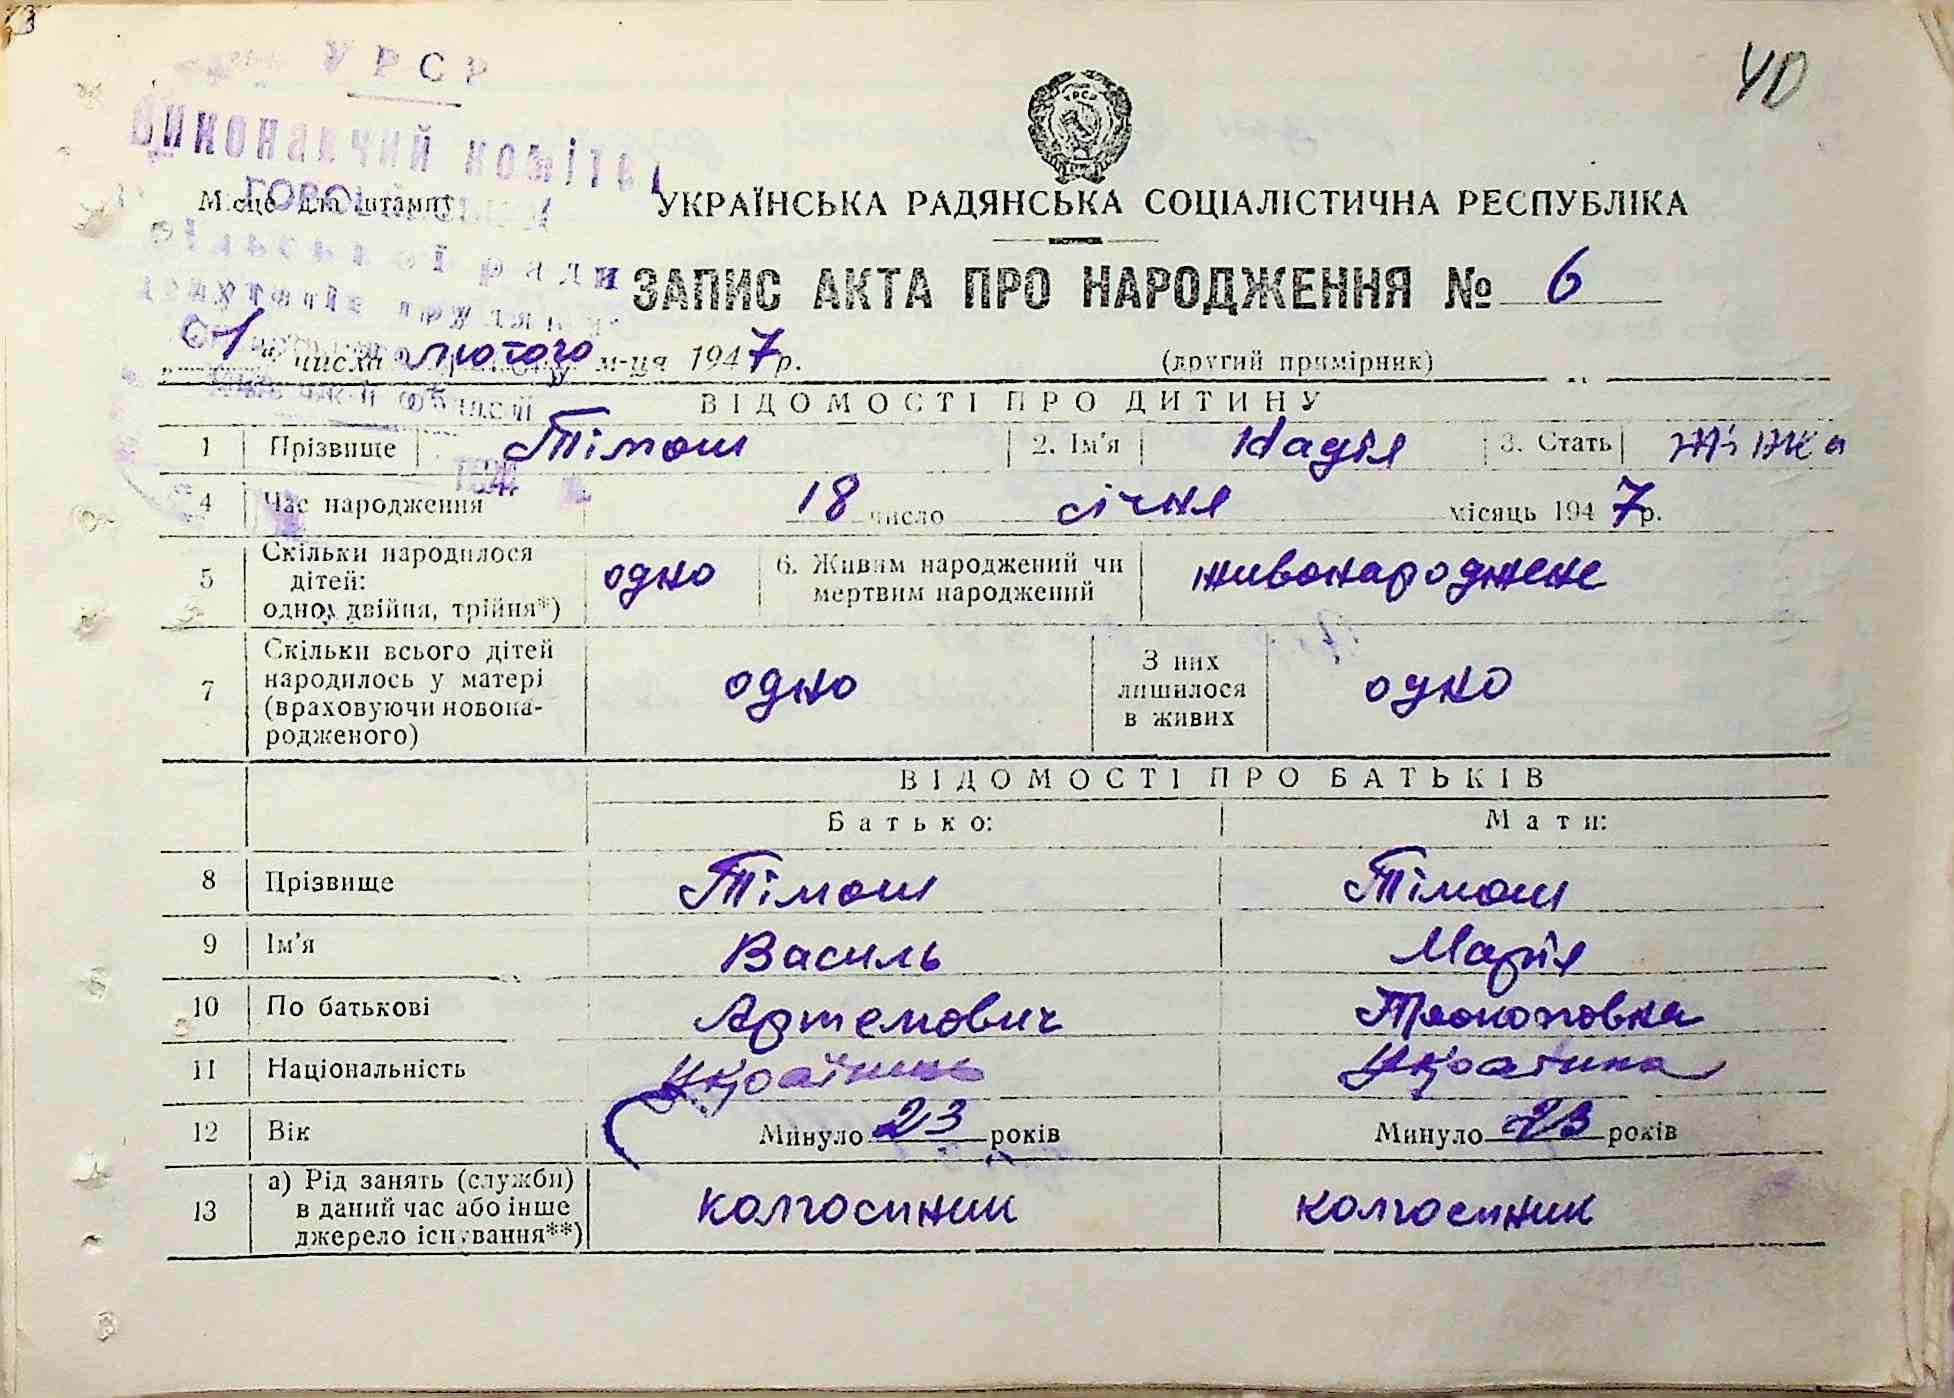 УРСР
Виконавчий комітет
40
УРСР
Місце для штампу
УКРАЇНСЬКА РАДЯНСЬКА СОЦІАЛІСТИЧНА РЕСПУБЛІКА
сільської ради
депутатів трудящих
ЗАПИС АКТА ПРО НАРОДЖЕННЯ № 6
"01" числа лютого м-ця 1947 р.
(другий примірник)
області
ВІДОМОСТІ ПРО ДИТИНУ
1 Прізвище Тімош 2. Ім'я Надія 3. Стать жінка
4 Час народження 18 число січня місяць 1947 р.
5 Скільки народилося дітей: одно, двійня, трійня*) одно 6. Живим народжений чи мертвим народжений живонароджене
7 Скільки всього дітей народилось у матері (враховуючи новонародженого) одно З них лишилося в живих одно
ВІДОМОСТІ ПРО БАТЬКІВ
Батько: Мати:
8 Прізвище Тімош Тімош
9 Ім'я Василь Марія
10 По батькові Артемович Прокоповна
11 Національність Українець Українка
12 Вік Минуло 23 років Минуло 23 років
13 а) Рід занять (служби) в даний час або інше джерело існування**) колгоспник колгоспник